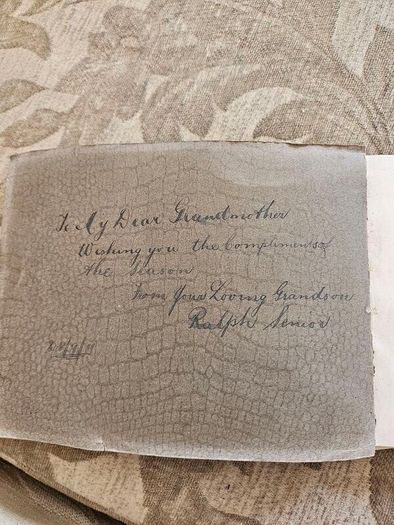 To My Dear Grandmother
Wishing you the Compliments of
the Season
From Your Loving Grandson
Ralph Senior